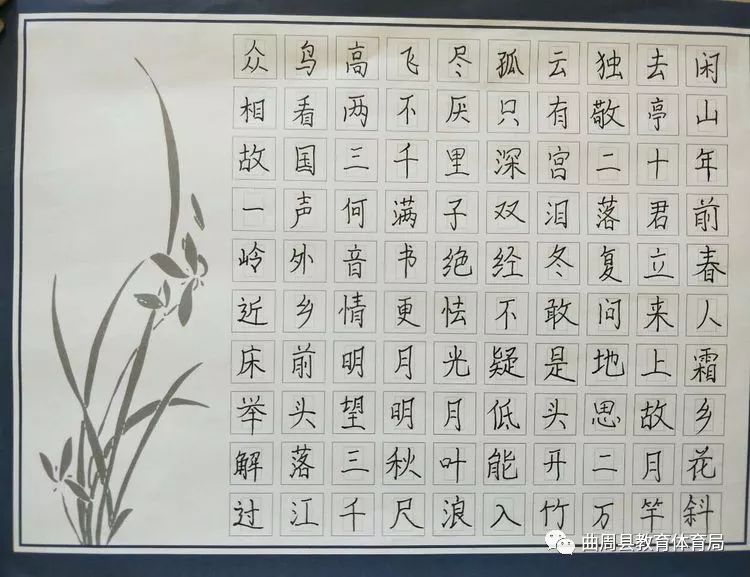 众鸟高飞尽孤云独去闲
相看两不厌只有敬亭山
故国三千里深宫二十年
一声何满子双泪落君前
岭外音书绝经冬复立春
近乡情更怯不敢问来人
床前明月光疑是地上霜
举头望明月低头思故乡
解落三秋叶能开二月花
过江千尺浪入竹万竿斜
曲周县教育体育局